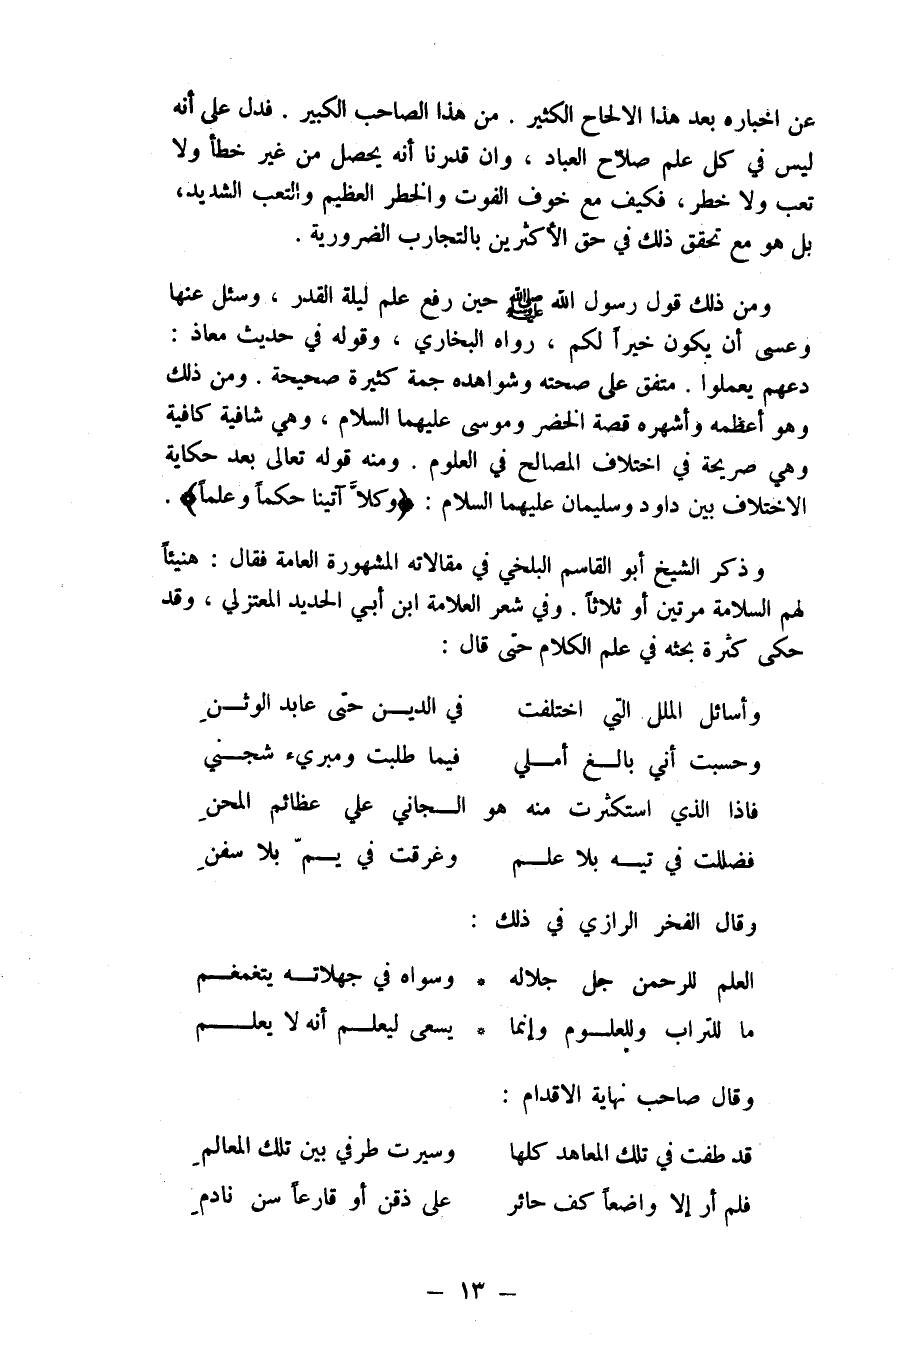 عن اخباره بعد هذا الالحاح الكثير . من هذا الصاحب الكبير . فدل على أنه
ليس في كل علم صلاح العباد ، وان قدرنا أنه يحصل من غير خطأ ولا
تعب ولا خطر ، فكيف مع خوف الفوت والخطر العظيم والتعب الشديد،
بل هو مع تحقق ذلك في حق الأكثرين بالتجارب الضرورية .
ومن ذلك قول رسول الله ﷺ حين رفع علم ليلة القدر ، وسئل عنها
وعسى أن يكون خيراً لكم ، رواه البخاري ، وقوله في حديث معاذ :
دعهم يعملوا . متفق على صحته وشواهده جمة كثيرة صحيحة . ومن ذلك
وهو أعظمه وأشهره قصة الخضر وموسى عليهما السلام ، وهي شافية كافية
وهي صريحة في اختلاف المصالح في العلوم . ومنه قوله تعالى بعد حكاية
الاختلاف بين داود وسليمان عليهما السلام : ﴿وكلاًّ آتينا حكماً وعلماً﴾ .
وذكر الشيخ أبو القاسم البلخي في مقالاته المشهورة العامة فقال : هنيئاً
لهم السلامة مرتين أو ثلاثاً . وفي شعر العلامة ابن أبي الحديد المعتزلي ، وقد
حكى كثرة بحثه في علم الكلام حتّى قال :
وأسائل الملل التي اختلفت في الديـن حتّى عابد الوثـنِ
وحسبت أني بالـغ أمـلي فيما طلبت ومبريء شجـني
فاذا الذي استكثرت منه هو الـجاني علي عظائم المحنِ
فضللت في تيـه بلا علـم وغرقت في يـمّ بلا سفنِ
وقال الفخر الرازي في ذلك :
العلم للرحمن جل جلاله * وسواه في جهلاتـه يتغمغـم
ما للتراب وللعلـوم وإنما * يسعى ليعلـم أنه لا يعلـم
وقال صاحب نهاية الاقدام :
قد طفت في تلك المعاهد كلها وسيرت طرفي بين تلك المعالمِ
فلم أر إلا واضعاً كف حائر على ذقن أو قارعاً سن نادمِ
– ١٣ –